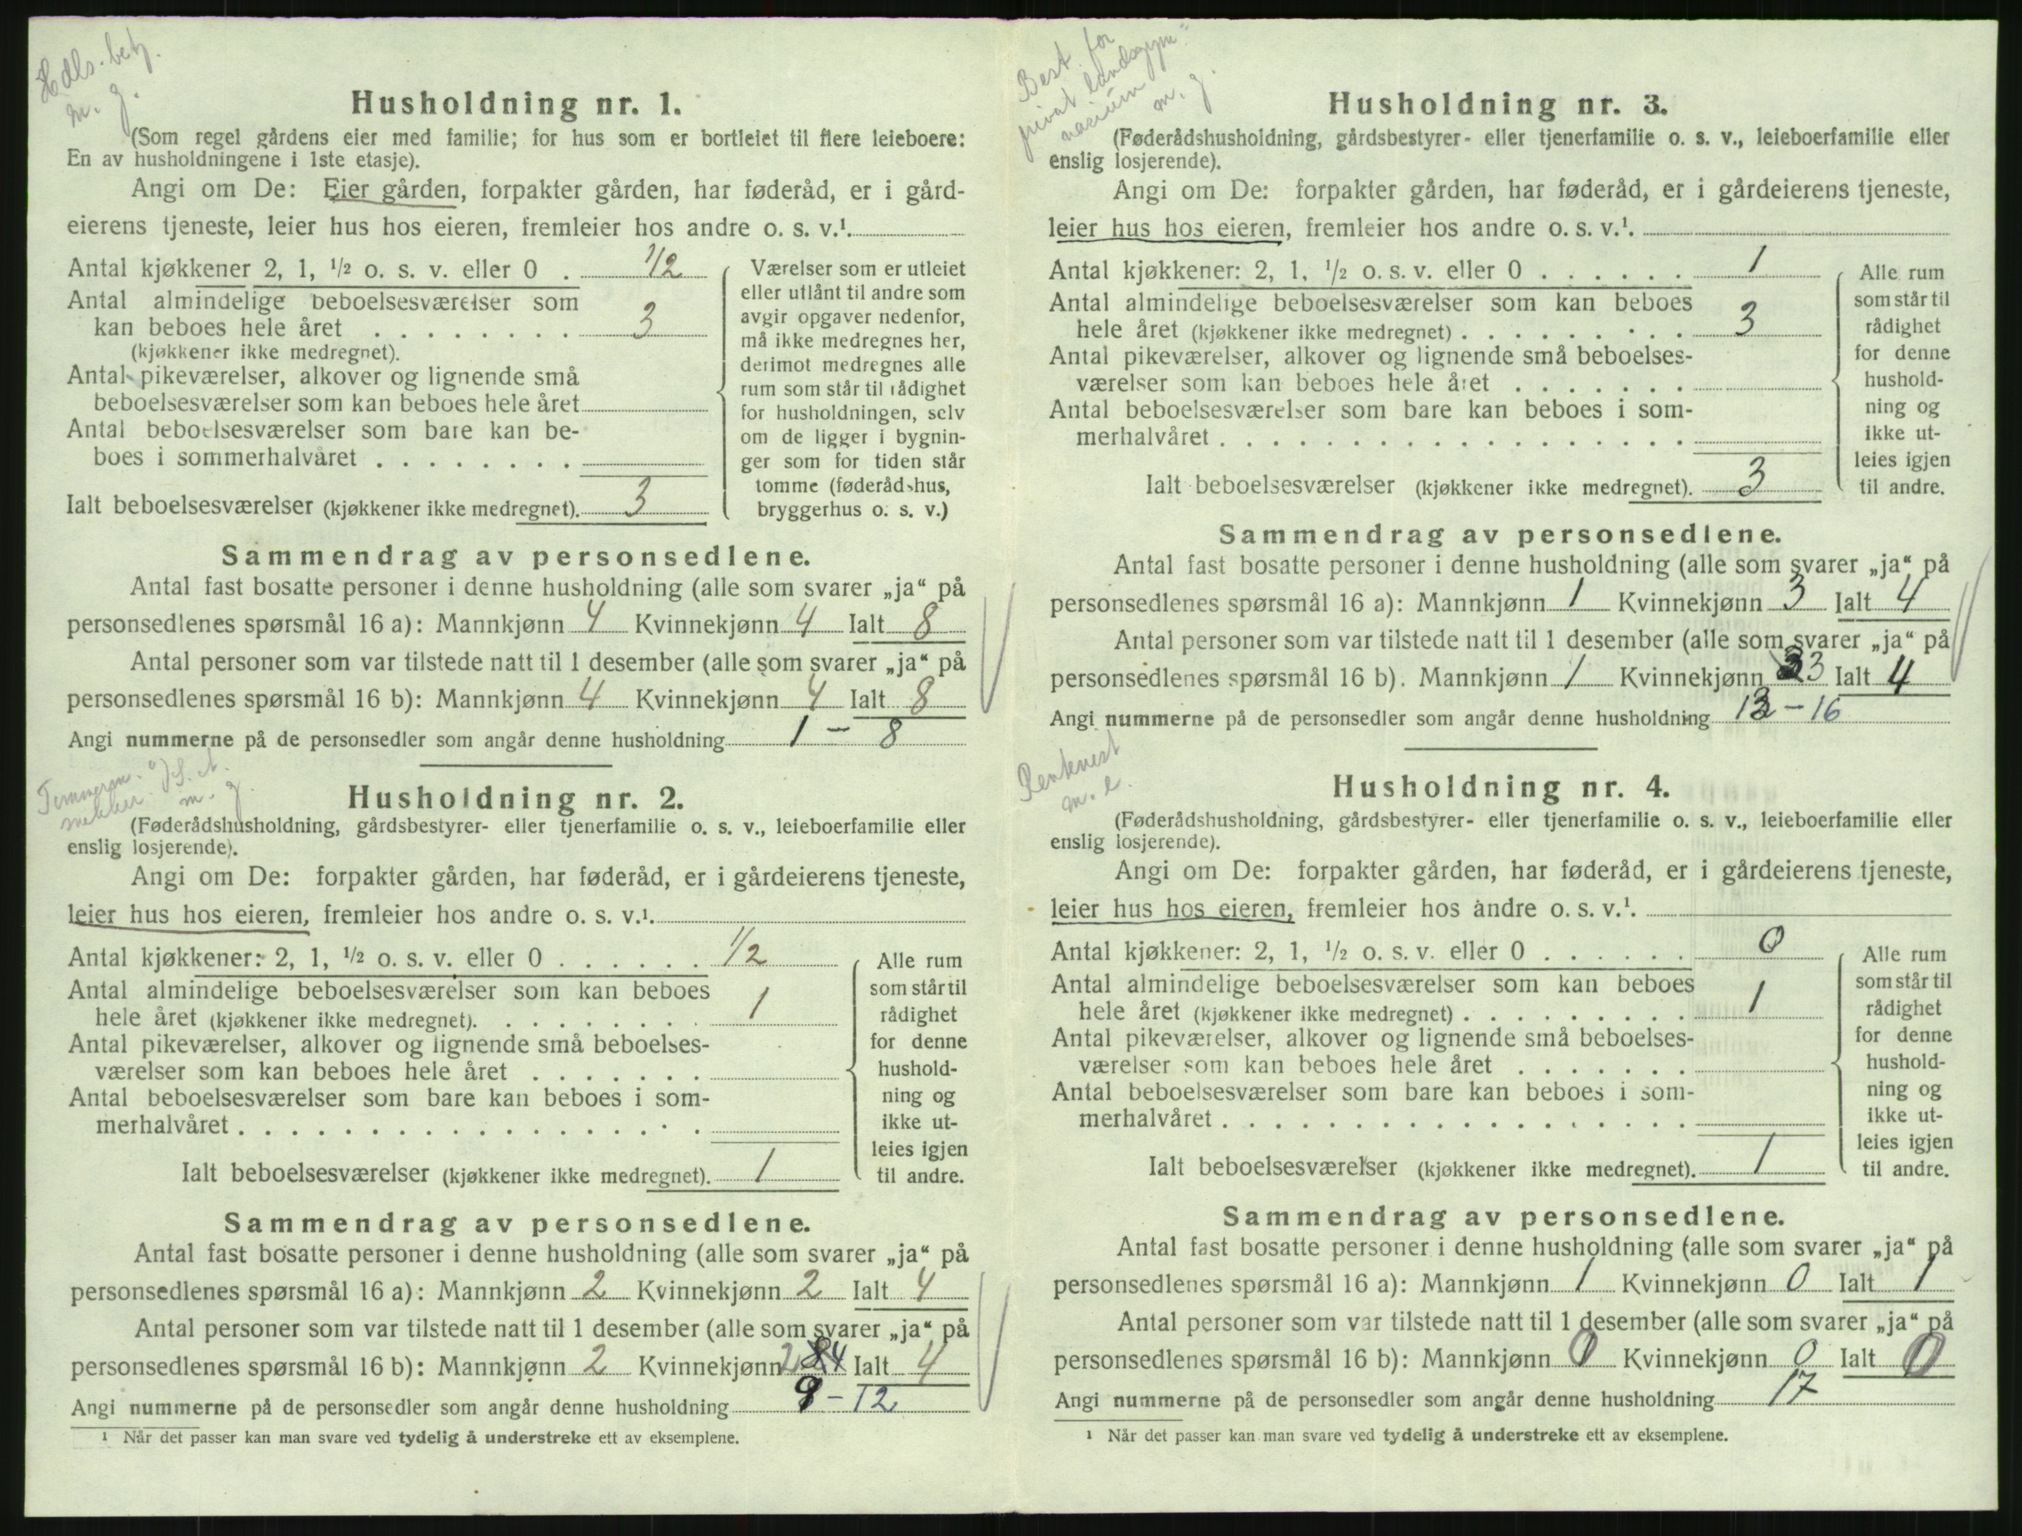 Hdls. betj.
m. g.
Husholdning nr. 1.
(Som regel gårdens eier med familie; for hus som er bortleiet til flere leieboere:
En av husholdningene i 1ste etasje).
Angi om De: Eier gården, forpakter gården, har føderåd, er i gård-
eierens tjeneste, leier hus hos eieren, fremleier hos andre o. s. v.¹.
Antal kjøkkener 2, 1, ½ o. s. v. eller 0 . 1/2
Antal almindelige beboelsesværelser som
kan beboes hele året . . . . . . . . 3
(kjøkkener ikke medregnet).
Antal pikeværelser, alkover og lignende små
beboelsesværelser som kan beboes hele året
Antal beboelsesværelser som bare kan be-
boes i sommerhalvåret . . . . . . . .
Ialt beboelsesværelser (kjøkkener ikke medregnet). 3
Værelser som er utleiet
eller utlånt til andre som
avgir opgaver nedenfor,
må ikke medregnes her,
derimot medregnes alle
rum som står til rådighet
for husholdningen, selv
om de ligger i bygnin-
ger som for tiden står
tomme (føderådshus,
bryggerhus o. s. v.)
Sammendrag av personsedlene.
Antal fast bosatte personer i denne husholdning (alle som svarer „ja“ på
personsedlenes spørsmål 16 a): Mannkjønn 4 Kvinnekjønn 4 Ialt 8
Antal personer som var tilstede natt til 1 desember (alle som svarer „ja“ på
personsedlenes spørsmål 16 b): Mannkjønn 4 Kvinnekjønn 4 Ialt 8
Angi nummerne på de personsedler som angår denne husholdning 1 — 8
Tømmerm. o/ S. A.
snekker m. g.
Husholdning nr. 2.
(Føderådshusholdning, gårdsbestyrer- eller tjenerfamilie o. s. v., leieboerfamilie eller
enslig losjerende).
Angi om De: forpakter gården, har føderåd, er i gårdeierens tjeneste,
leier hus hos eieren, fremleier hos andre o. s. v.¹.
Antal kjøkkener: 2, 1, ½ o. s. v. eller 0 . . . . . . 1/2
Antal almindelige beboelsesværelser som kan beboes
hele året (kjøkkener ikke medregnet). . . . . . . . . 1
Antal pikeværelser, alkover og lignende små beboelses-
værelser som kan beboes hele året . . . . . . .
Antal beboelsesværelser som bare kan beboes i som-
merhalvåret . . . . . . . . . . . . . . . . . .
Ialt beboelsesværelser (kjøkkener ikke medregnet). 1
Alle rum
som står til
rådighet
for denne
hushold-
ning og
ikke ut-
leies igjen
til andre.
Sammendrag av personsedlene.
Antal fast bosatte personer i denne husholdning (alle som svarer „ja“ på
personsedlenes spørsmål 16 a): Mannkjønn 2 Kvinnekjønn 2 Ialt 4
Antal personer som var tilstede natt til 1 desember (alle som svarer „ja“ på
personsedlenes spørsmål 16 b): Mannkjønn 2 Kvinnekjønn 2 Ialt 4
Angi nummerne på de personsedler som angår denne husholdning 9 — 12
¹ Når det passer kan man svare ved tydelig å understreke ett av eksemplene.
Best. for
privat landsgym=
nasium
m. g.
Husholdning nr. 3.
(Føderådshusholdning, gårdsbestyrer- eller tjenerfamilie o. s. v., leieboerfamilie eller
enslig losjerende).
Angi om De: forpakter gården, har føderåd, er i gårdeierens tjeneste,
leier hus hos eieren, fremleier hos andre o. s. v.¹.
Antal kjøkkener: 2, 1, ½ o. s. v. eller 0 . . . . . . 1
Antal almindelige beboelsesværelser som kan beboes
hele året (kjøkkener ikke medregnet) . . . . . . . . . 3
Antal pikeværelser, alkover og lignende små beboelses-
værelser som kan beboes hele året . . . . . . .
Antal beboelsesværelser som bare kan beboes i som-
merhalvåret . . . . . . . . . . . . . . . . . .
Ialt beboelsesværelser (kjøkkener ikke medregnet). 3
Alle rum
som står til
rådighet
for denne
hushold-
ning og
ikke ut-
leies igjen
til andre.
Sammendrag av personsedlene.
Antal fast bosatte personer i denne husholdning (alle som svarer „ja“ på
personsedlenes spørsmål 16 a): Mannkjønn 1 Kvinnekjønn 3 Ialt 4
Antal personer som var tilstede natt til 1 desember (alle som svarer „ja“ på
personsedlenes spørsmål 16 b). Mannkjønn 1 Kvinnekjønn 3 Ialt 4
Angi nummerne på de personsedler som angår denne husholdning 13 — 16
m. e.
Husholdning nr. 4.
(Føderådshusholdning, gårdsbestyrer- eller tjenerfamilie o. s. v., leieboerfamilie eller
enslig losjerende).
Angi om De: forpakter gården, har føderåd, er i gårdeierens tjeneste,
leier hus hos eieren, fremleier hos andre o. s. v.¹.
Antal kjøkkener: 2, 1, ½ o. s. v. eller 0 . . . . . . 0
Antal almindelige beboelsesværelser som kan beboes
hele året (kjøkkener ikke medregnet) . . . . . . . . . 1
Antal pikeværelser, alkover og lignende små beboelses-
værelser som kan beboes hele året . . . . . . .
Antal beboelsesværelser som bare kan beboes i som-
merhalvåret . . . . . . . . . . . . . . . . . .
Ialt beboelsesværelser (kjøkkener ikke medregnet). 1
Alle rum
som står til
rådighet
for denne
hushold-
ning og
ikke ut-
leies igjen
til andre.
Sammendrag av personsedlene.
Antal fast bosatte personer i denne husholdning (alle som svarer „ja“ på
personsedlenes spørsmål 16 a): Mannkjønn 1 Kvinnekjønn 0 Ialt 1
Antal personer som var tilstede natt til 1 desember (alle som svarer „ja“ på
personsedlenes spørsmål 16 b): Mannkjønn 0 Kvinnekjønn 0 Ialt 0
Angi nummerne på de personsedler som angår denne husholdning 17
¹ Når det passer kan man svare ved tydelig å understreke ett av eksemplene.